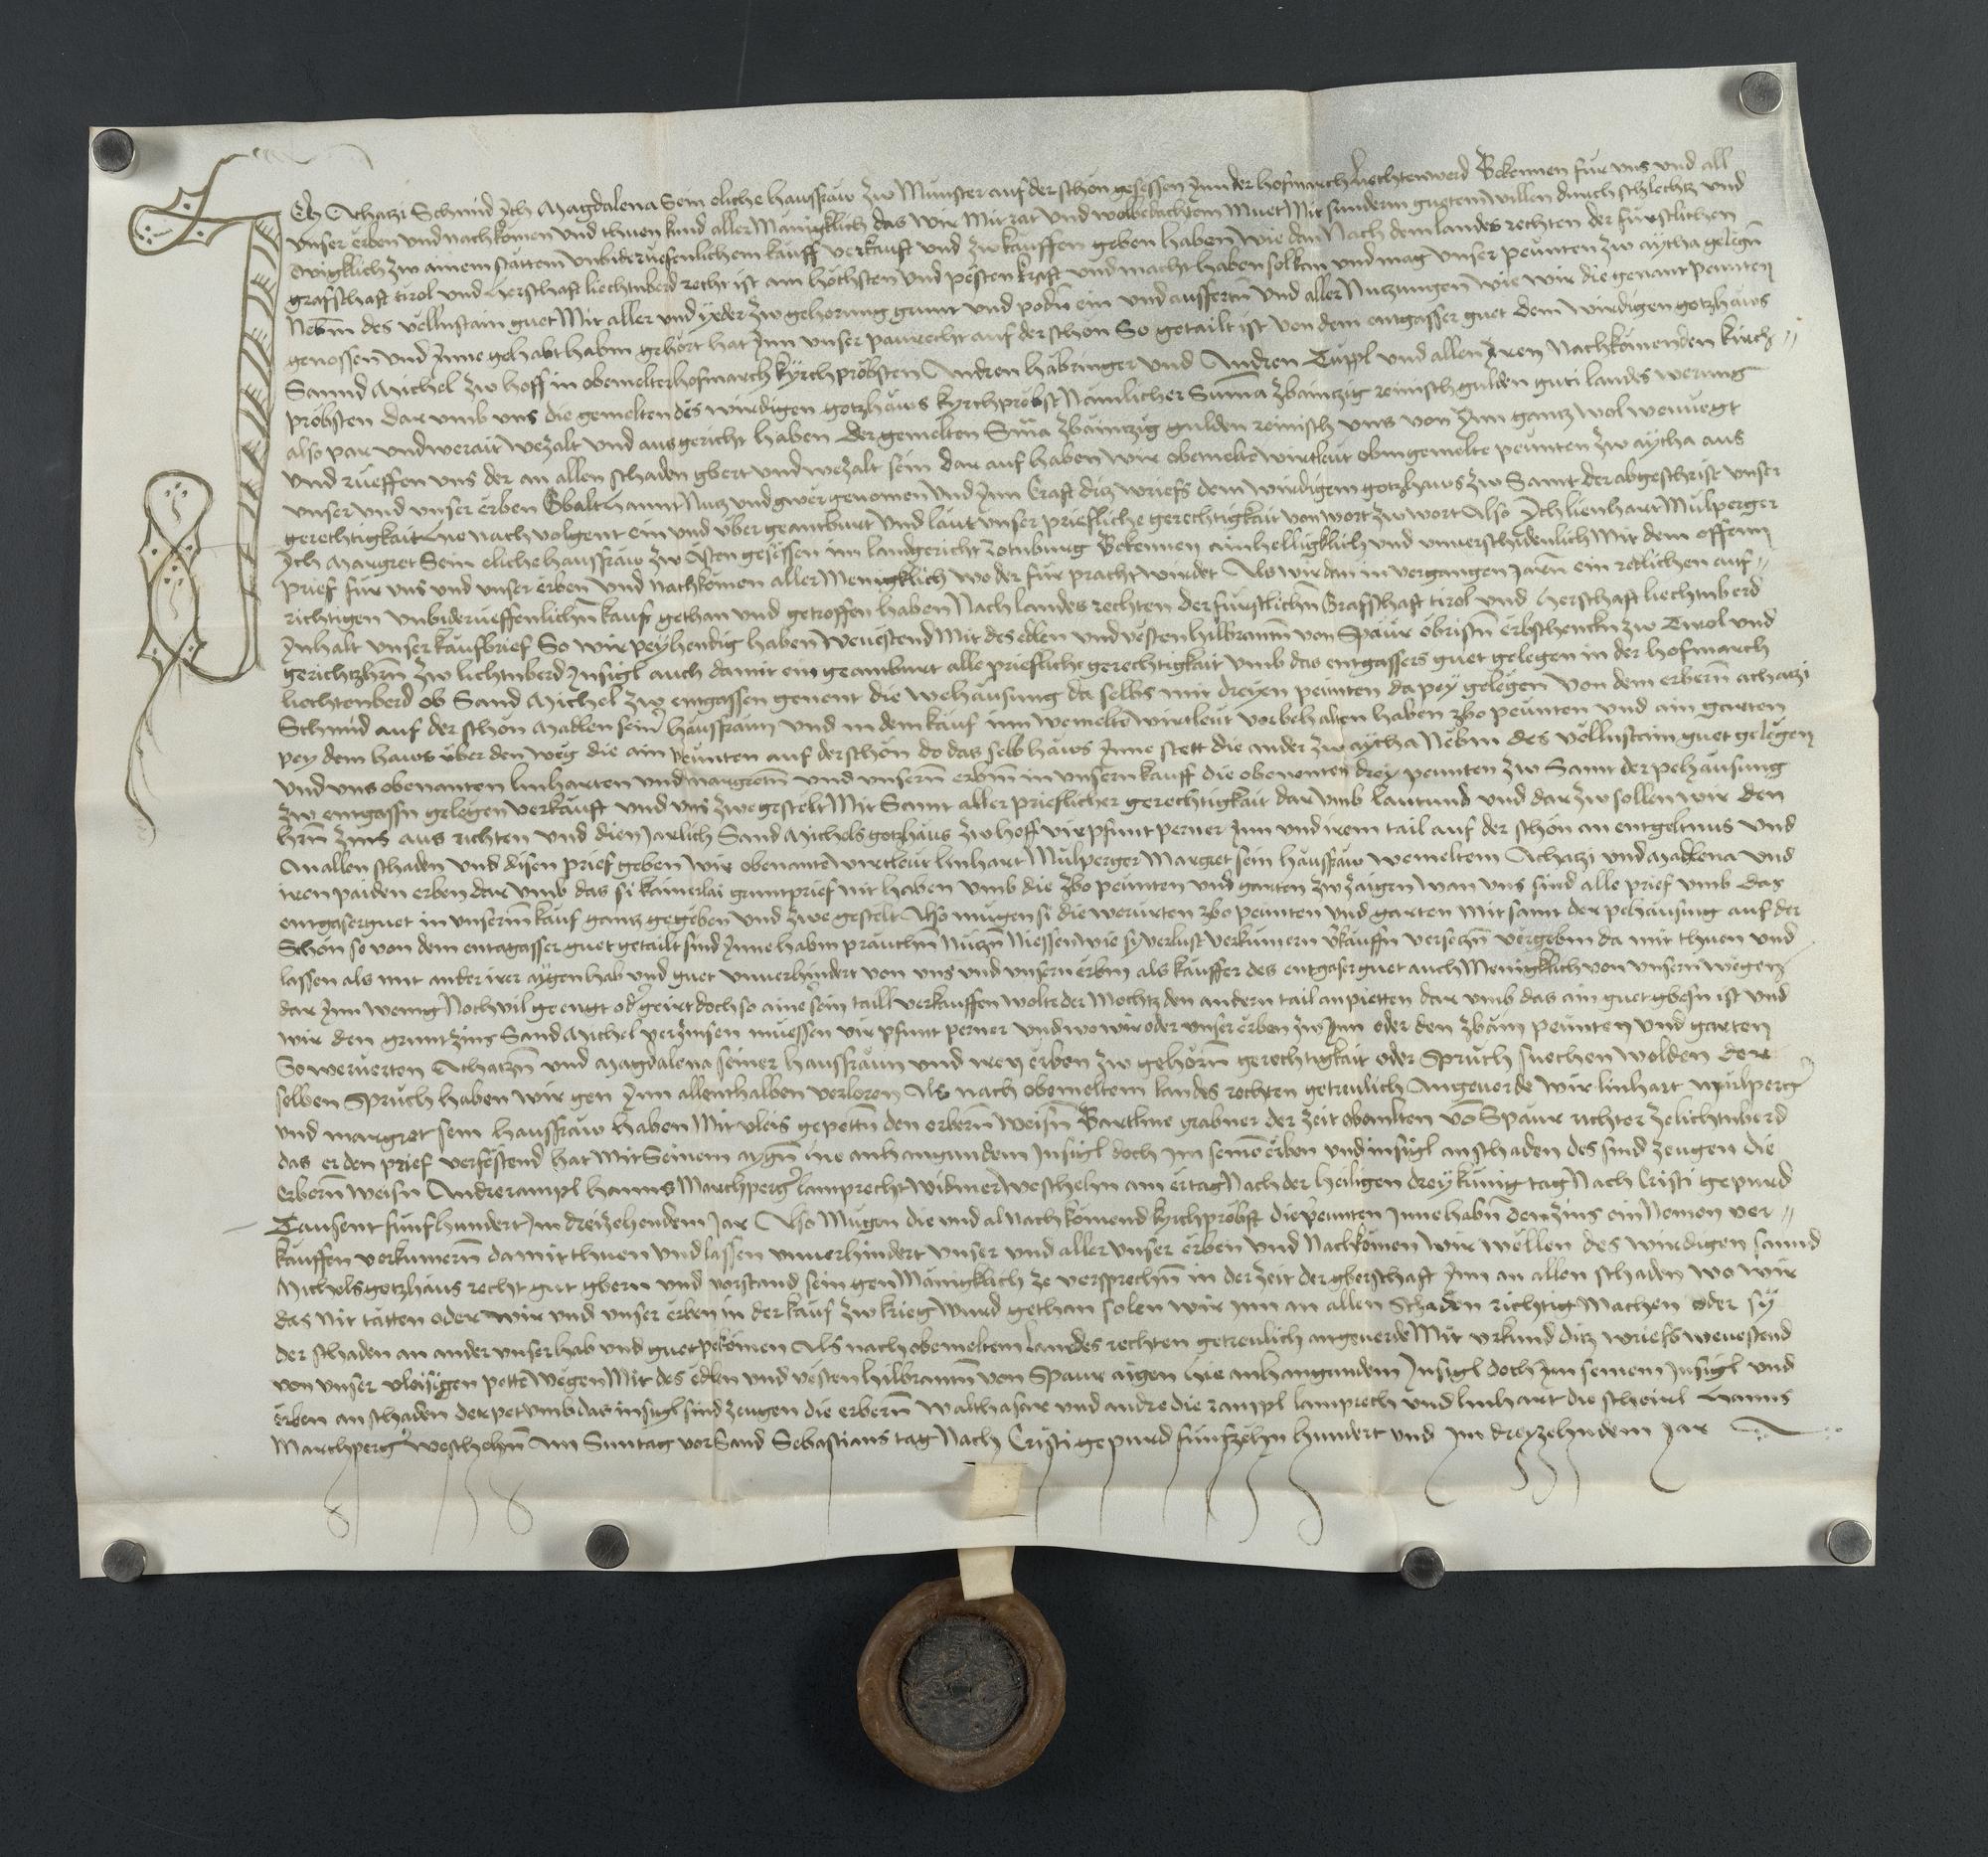 Ich Achatzi Schmid Ich Magdalena Sein eliche hausfraw zw Munster auf der schon gesessen Inn der hofmarch Liechtenwerd Bekennen fur uns und all
unser erben und nachkomen und thuen kund aller Mänigklich das wir Mit rat und wolbedachtem Muet Mit sunderm guetem willen durch schlechtz und
ewigklich zw ainem stattem unbiderueffenlichem kauff verkauft und zw kauffen geben haben wie dan Nach dem landes rechten der furstlichen
grafschaft tirol und herschaft liechtnberd recht ist am höchsten und pesten kraft und macht haben sol kan und mag unser peunten zw aytha gelegn
Nebm des vellnstain guet Mit aller und yeder zw gehorung grunt und podn ein und ausfertn und aller Nutzungen wie wir die genant peunten
genossen und Inne gehabt habm gehort hat Inn unser paurecht auf der schon So getailt ist von dem entgasser guet dem wirdigen gotzhaws
Sannd Michel zw hoff in obemelter hofmarch kyrchpröbsten Andren habringer und Andren Tuppl und allen Iren Nachkomenden kirch
pröbsten dar umb uns die gemelten des wirdigen gotzhaws kyrchpröbst Namlicher Suma zbaintzig reinisch gulden guti landes werung
also par und werait wezalt und ausgericht haben der gemelten Suma zbaintzig gulden reinisch uns von Inn gantz wol wenuegt
und rueffen uns der an allen schaden gbert und wezalt sein dar auf haben wir obemelte wirtleut obingemelte peunten zw aytha aus
unser und unser erben Gbalt hannt Nutz und gwer genomen und Inn Craft ditz wriefs dem wirdigem gotzhaws zw Samt der abgeschrift unser
gerechtigkait hie nach volgent ein und uber geantburt und laut unser priefliche gerechtigkait von wort zw wort Also Ich lienhart Mulperger
Ich Margret Sein eliche hausfraw zw Usten gesessen im landgericht Rotnburg Bekennen ainhelligklich und unverschidenlich Mit dem offenn
prief fur uns und unser erben und nachkomen aller Menigklich wo der fur pracht wirdet Als wir dan in vergangen Jarn ein redlichen auf
richtigen unbiderueffenlichn kauf gethan und getroffen haben Nach landes rechten der furstlichn Grafschaft tirol und herschaft liechtnberd
Inhalt unser kaufbrief So wir peyhendig haben wevestend Mit des edlen und vesten hilbrantn von Spaur obristn erbschenckn zw Tirol und
gerichtzhrn zw lichtnberd Insigl auch damit ein geantburt alle priefliche gerechtigkait umb das entgassers guet gelegen in der hofmarch
liechtenberd ob Sand Michel zw entgassen genent die wehausung da selbs mit dreyen peunten da pey gelegen von dem erbern achatzi
Schmid auf der schon Madlen seiner hausfraun und in dem kauf inn wemelte wirtleut vorbehalten haben zbo peunten und ain garten
pey dem haws uber den weg die ain peunten auf der schon do das selb haws Inne stett die ander zw aytha Nebm des vellnstain guet gelegen
und uns obenanten linharten und margretn und unsern erbm in unsern kauff die obenenten drey peunten zw Samt der pehausung
zw entgassn gelegen verkauft und uns zwegestelt Mit Samt aller prieflicher gerechtigkait dar umb lautund und dar zw sollen wir den
hrn zins aus richten und dien Jarlich Sand Michels gotzhaus zw hoff vir pfunt perner Inn und irem tail auf der schon an entgeltnus und
An allen schaden und disen prief geben wir obenante wirtleut linhart Mulperger Margret sein hausfraw wemeltem Achatzi und Madlena und
iren paiden erben dar umb das si kainerlai gruntprief nit haben umb die zbo peunten und garten zw zaigen wan uns sind alle prief umb das
entgaserguet in unserm kauf gantz gegeben und zwe gestelt Also mugen si die werurten zbo peunten und garten mit samt der pehausung auf der
Schon so von dem entgasser guet getailt sind Inne habm prauchn nutzn Niessen wie sy verlust verkumern verkauffn versetzn vergebm da mit thuen und
lassen als mit ander irer aygen hab und guet unverhindert von uns und unsern erbm als kauffer des entgaser guet auch Menigklich von unsern wegen
dar Inn wenig Noch vil ge engt oder geirt doch so ainer sein taill verkauffen wolte der Mochtz den andern tail anpietten dar umb das ain guet gbesn ist und
wir den gruntzins Sand Michel verzinsen muessen vir pfunt perner und wo wir oder unser erben zw Inn oder den zbain peunten und garten
So wervrten Achatzn und Magdalena seiner hausfraun und iren erben zw gehorn gerechtigkait oder Spruch suechen wolden der
selben Spruch haben wir gen Inn allenthalben verloren Als nach obemeltem landes rechten getreulich Angeverde wir linhart Mulperger
und margret sein hausfraw haben Mit vleis gepettn den erbern weisn Bartlme grabner der zeit obemlten von Spaur richter ze lichtnberd
das er den prief verfestend hat Mit Seinem aygn hie anhangundem Insigl doch im seinen erben und insigl an schaden des sind zeugen die
Erbern weisn Andre rampl hanns Marchperger lamprecht widmer weschehn am ertag Nach der heiligen drey kunig tag Nach Cristi gepurd
Tausent funfhundert Im dreizehendem Jar Also Mugen die und al nach komend kyrchpröbst die peunten Inne habn den zins ein Nemen ver
kauffen verkumern da mit thuen und lassen unverhindert unser und aller unser erben und Nachkomen wir wellen des wirdigen sannd
Michels gotzhaus recht gut gbern und vorstand sein gen Mänigklich ze versprechn in der zeit der gberschaft Inn an allen schaden wo wir
das Nit tätten oder wir und unser erben in der kauf zw krieg wurd gethan solen wir inn an allen Schaden richtig Machen oder sy
der schaden an ander unser hab und guet pekomen Als nach obemeltem landes rechten getreulich angeverde Mit urkund ditz wriefs wevestend
von unser vleisigen pette wegen Mit des edlen und vesten hilbrantn von Spaur aigen hie anhangundem Insigl doch Im seinem Insigl und
erben an schaden der pet umb das insigl sind zeugen die erbern walthasar und andre die rampl lamprech und linhart die scheirl hanns
Marchperger weschehn Am Suntag vor Sand Sebastians tag Nach Cristi gepurd funfzehn hundert und Im dreyzehndem Jar